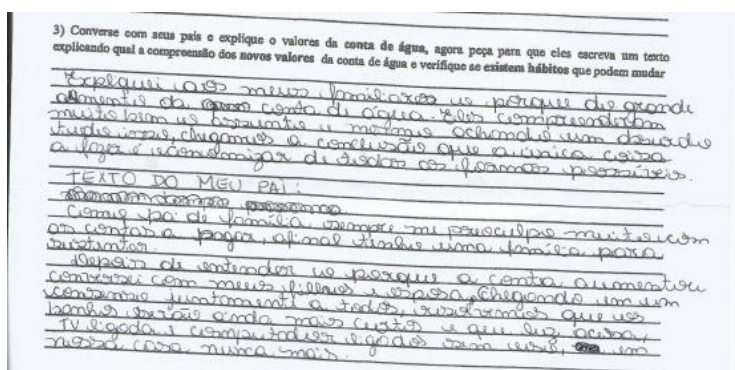 3) Converse com seus pais e explique o valores da conta de água, agora peça para que eles escreva um texto
explicando qual a compreensão dos novos valores da conta de água e verifique se existem hábitos que podem mudar
Expliquei aos meus familiares o porque do grande
almento da conta de água. Eles compreenderam
muito bem o assunto e mesmo achando um absurdo
tudo isso, chegamos a conclusão que a única coisa
a fazer é economizar de todas as formas possíveis.
TEXTO DO MEU PAI:
Como pai de família, sempre me preoculpo muito com
as contas a pagar, afinal tenho uma família para
sustentar.
Depois de entender o porque a conta aumentou
conversei com meus filhos e esposa, Chegando em um
consenso juntamente a todos, resolvemos que os
banhos serão ainda mais curtos e que luz acesa,
TV ligada e computador ligados sem uso, em
nossa casa nunca mais.